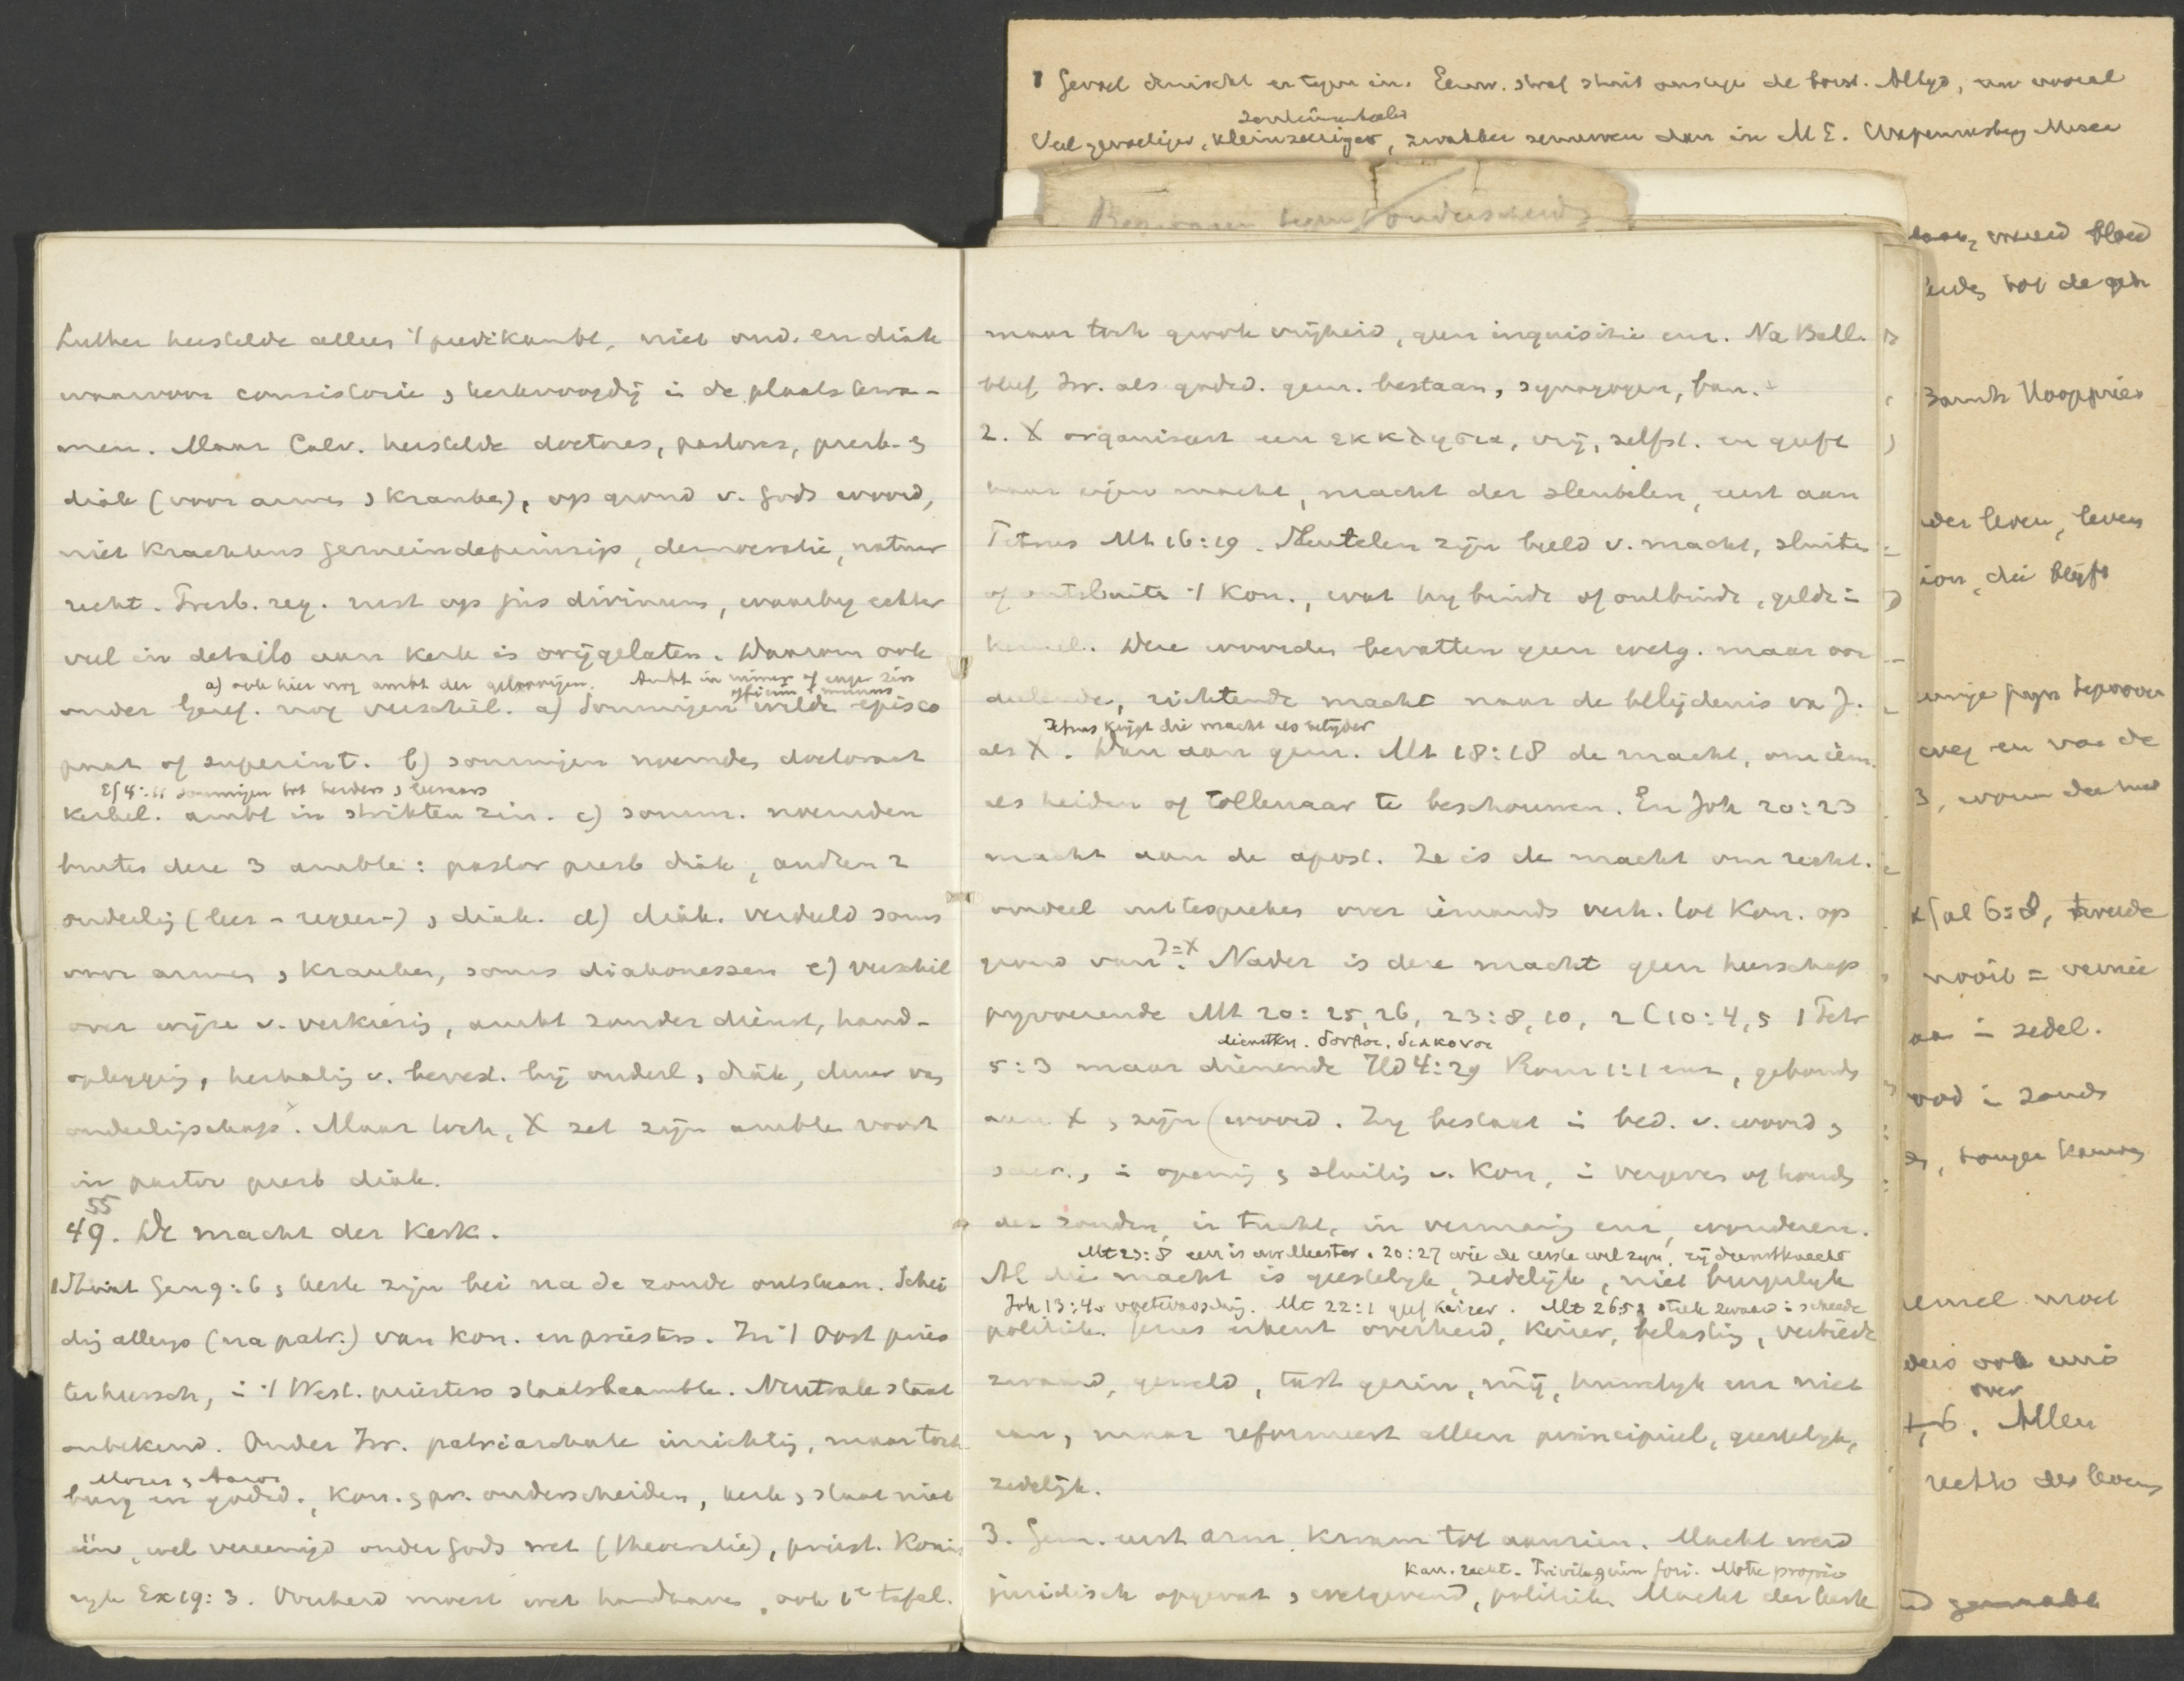 1 Gevoel druischt er tegen in. Eeuw. straf stuit ons tegen de borst. Altijd, nu vooral
zenuwen dan in M E.
Veel gevoeliger, kleinzeeriger, zwakker
onderscheid
Luther herstelde alleen 't predikambt, niet oud. en diak
waarvoor consistorie, kerkvoogdij in de plaats kwa-
men. Maar Calv. herstelde doctores, pastores, presb. &
diak (voor armen, kranken), op grond v. Gods woord,
niet krachtens gemeindeprinzip, democratie, natuur
recht. Presb. reg. rust op jus divinum, waarby echter
veel in details aan kerk is vrijgelaten. Waarom ook
a) ook hier nog ambt der geloovigen. Ambt in ruimer of enger zin
officium & munus
onder Geref. nog verschil. a) Sommigen wilde episco
paat of superint. b) sommigen noemden doctoraat
Ef 4:11 sommigen tot herders, leeraars
kerkel. ambt in strikten zin. c) somm. noemden
deze 3 ambte: pastor presb diak, andren 2
ouderlijn (leer- regeer-), diak. d) diak. verdeeld soms
voor armen, kranken, soms diakonessen e) verschil
over wijze v. verkiezig, ambt zonder dienst, hand-
oplegging, herhalig v. bevest. bij ouderl, diak, duur van
ouderlijschap. Maar toch, X zet zijn ambte voort
in pastor presb diak.
55
49. De macht der Kerk.
1 Staat Gen 9:6, kerk zijn bei na de zonde ontstaan. Schei
dig alleys (na patr.) van kon. en priesters. In 't Oost pries
terheersch, in 't West. priesters staatsbeambte. Neutrale staat
onbekend. Onder Isr. patriarchale inrichtig, maar toch
Mozes, Aaron
burg en godsd., kon. & pr. onderscheiden, kerk, staat niet
één, wel vereenigd onder Gods wet (theocratie), priest. Konin
ryk Ex 19:3. Overheid moest wet handhaven, ook 1e tafel.
maar toch groote vrijheid, geen inquisitie enz. Na Ball.
bleef Isr. als godsd. gem. bestaan, synagogen, ban.
2. X organiseert een εκκλησια, vrij, zelfst. en geeft
haar eigen macht, macht der sleutelen, eerst aan
Petrus Mt 16:19. Sleutelen zijn beeld v. macht, sluiten
of ontsluite 't Kon., wat hij binde of ontbinde, geldt in
hemel. Deze woorden bevatten geen wetg. maar oor
deelende, richtende macht naar de belijdenis van J.
Petrus krijgt die macht als belijder
als X. Dan aan gem. Mt 18:18 de macht, om iem.
als heiden of tollenaar te beschouwen. En Joh 20:23
macht aan de apost. Ze is de macht om recht.
oordeel uittespreken over iemands verh. tot Kon. op
grond van J=X. Nader is deze macht geen heerschap
pyvoerende Mt 20:25,26, 23:8,10, 2 C 10:4,5 1 Petr
dienstkn. δουλοι. διακονοι
5:3 maar dienende Hd 4:29 Rom 1:1 enz, gebonden
aan X, zijn woord. Zij bestaat in bed. v. woord &
sacr., in openig & sluitig v. Kon, in vergeven of houden
der zonden, in tucht, in vermanig enz, wonderen.
Mt 23:8 een is uw Meester. 20:27 wie de eerste wil zyn, zij dienstknecht
Al die macht is geestelijk, zedelijk, niet burgelyk
Joh 13:4 voetwassching. Mt 22:1 geef keizer. Mt 26:52 steek zwaard in scheede
politiek. Jezus erkent overheid, keizer, belastig, verbiedt
zwaard, geweld, tast gezin, mij, huwelyk enz niet
aan, maar reformeert alleen principieel, geestelyk,
zedelijk.
3. Gem. eerst arm, kwam tot aanzien. Macht werd
Kan. recht. Privilegium fori. Motu proprio
juridisch opgevat, wetgevend, politiek. Macht der kerk
bloed
tot de
ion, die blijft
weg en van de
6:8, tweede
nooit =
in zedel.
ook
over
6. Allen
rechte des levens